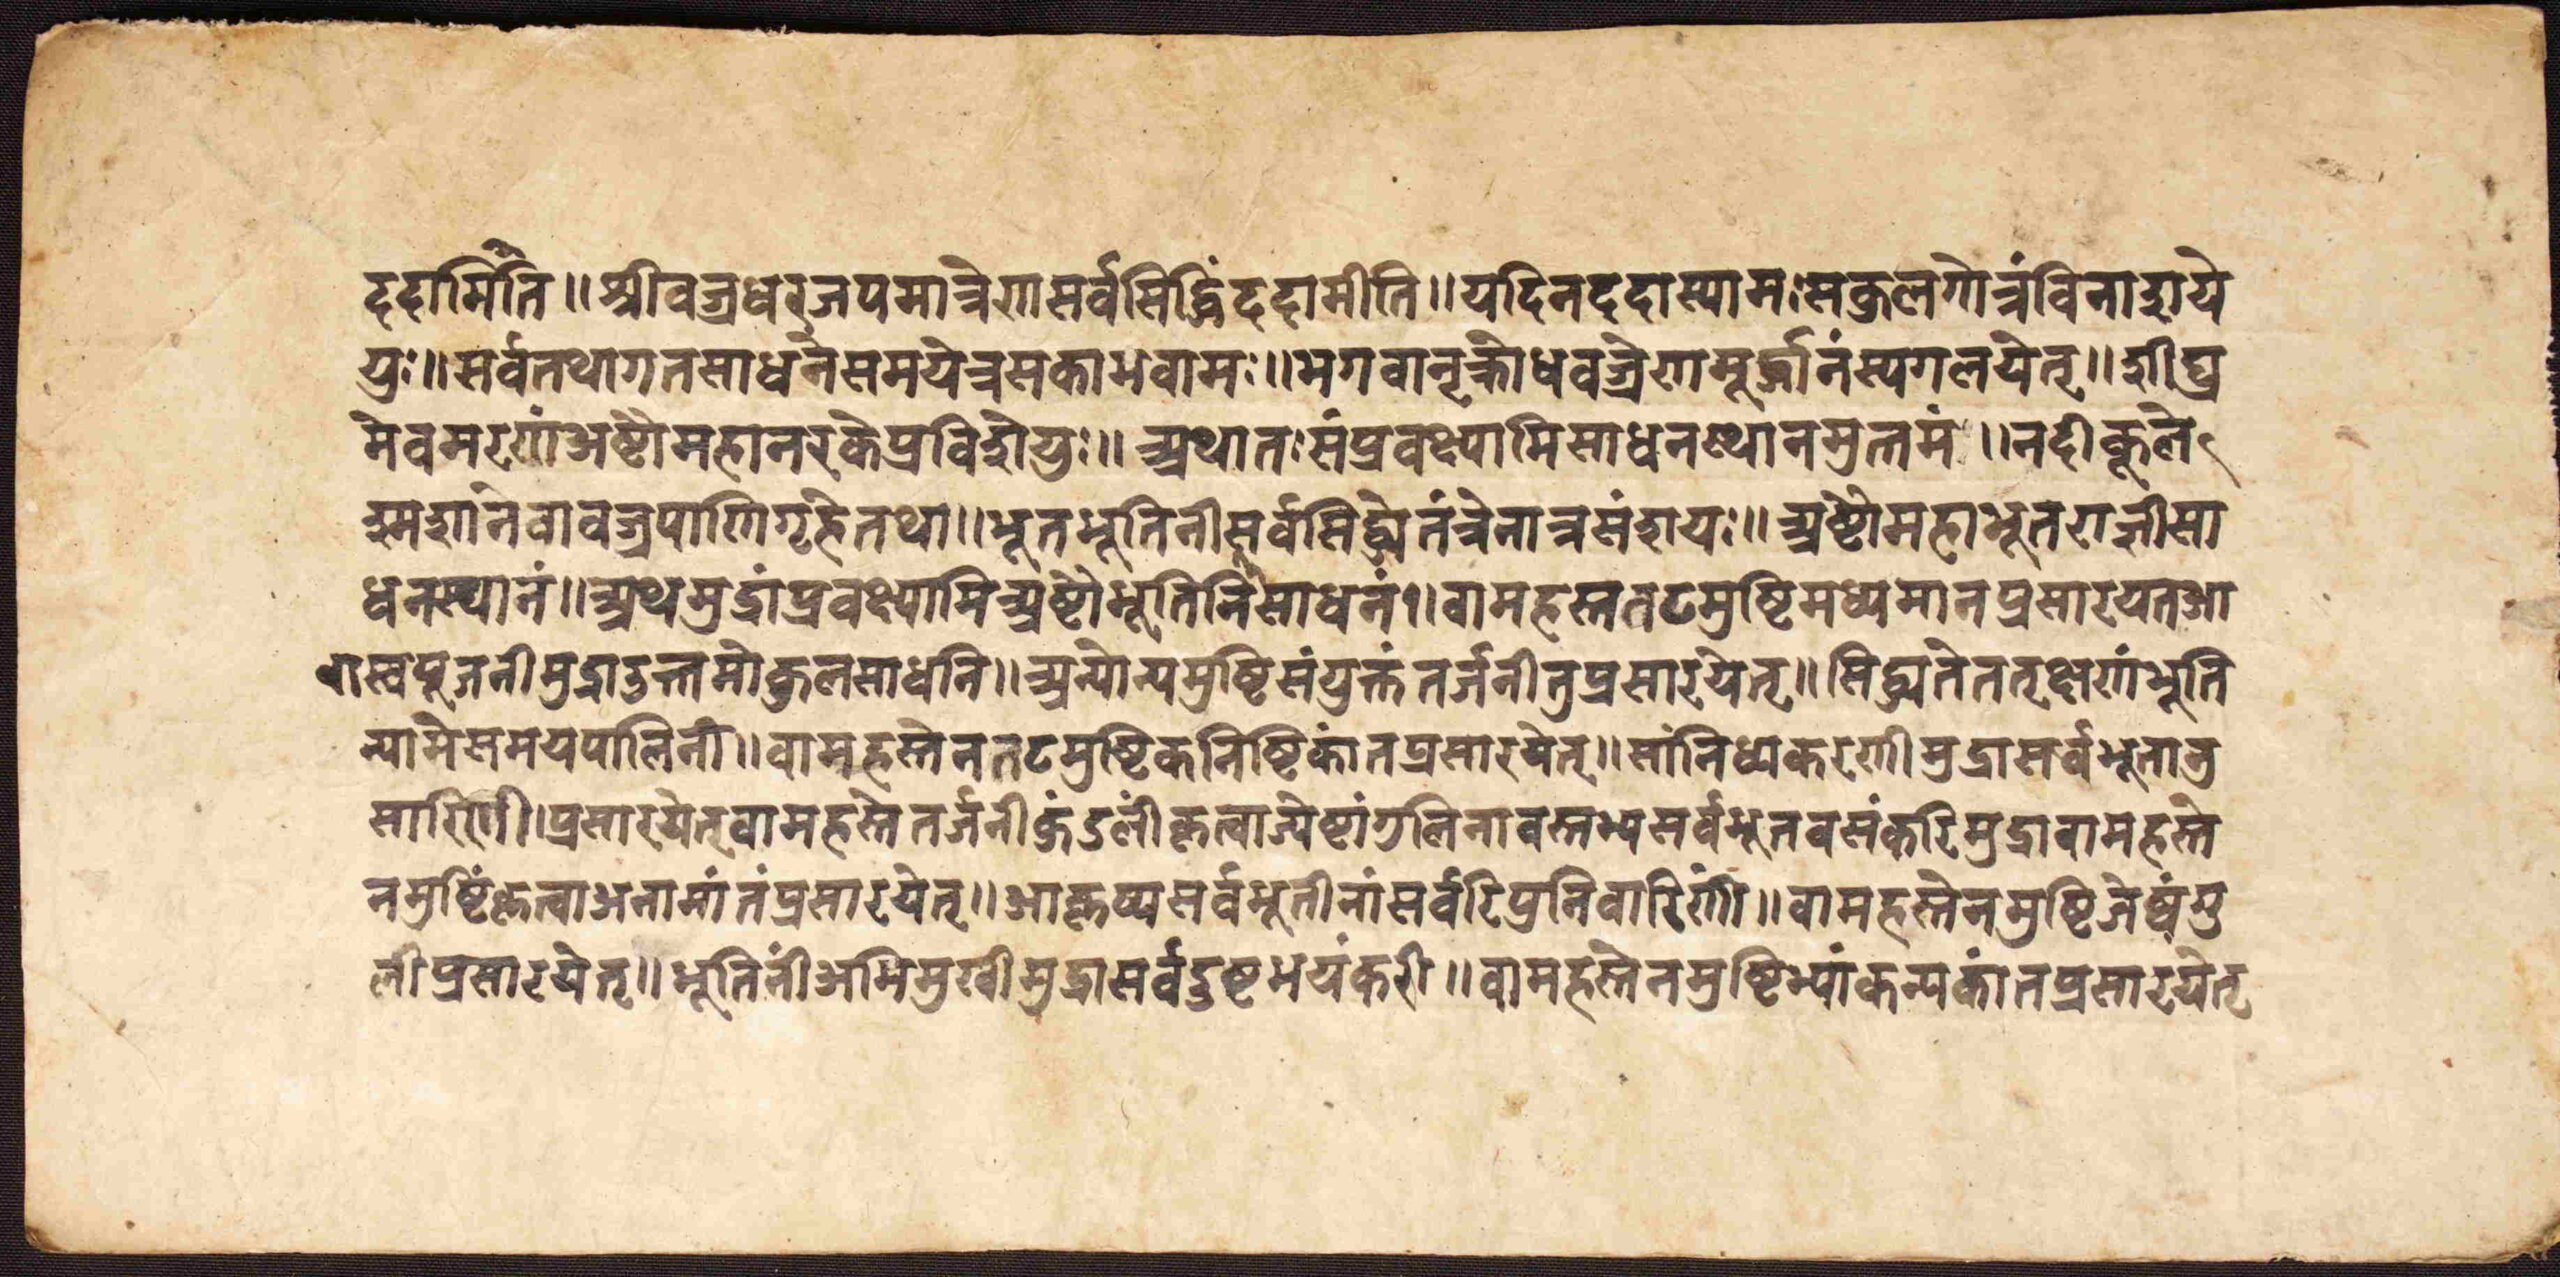 ददामिति॥श्रीवज्रधरजपमात्रेणसर्वसिद्धिंददामीति॥यदिनददास्यामःसकुलगोत्रंविनाशये
युः॥सर्वतथागतसाधनेसमयेत्रसकाभवामः॥भगवान्क्रोधवज्रेणमूर्द्धानंस्यगलयेत्॥शीघ्र
मेवमरणंअष्टौमहानरकेप्रविशेयुः॥अथातःसंप्रवक्ष्यामिसाधनष्थानमुत्तमं॥नदीकूले
श्मशानेवावज्रपाणिगृहेतथा॥भूतभूतिनीसर्वसिद्ध्येतंत्रेनात्रसंशयः॥अष्टौमहाभूतराज्ञीसा
धनस्थानं॥अथमुद्रांप्रवक्ष्यामिअष्टौभूतिनिसाधनं१॥वामहस्ततटमुष्टिमध्यमानप्रसारयतआ
वास्वपूजनीमुद्राउत्तमोकुलसाधनि॥अन्योन्यमुष्टिसंयुक्तंतर्जनीतुप्रसारयेत्॥सिद्ध्यतेतत्क्षणंभूति
न्यामेसमयपालिनीं॥वामहस्तेनतटमुष्टिकनिष्टिकांतप्रसारयेत्॥सांनिध्यकरणीमुद्रासर्वभूतानु
सारिणी।प्रसारयेत्वामहस्तेतर्जनीकुंडलींकृत्वाज्येष्टांगुलिनावस्तभ्यसर्वभूतवसंकरिमुद्रावामहस्ते
नमुष्टिंकृत्वाअनामांतंप्रसारयेत्॥आकृष्यसर्वभूतीनांसर्वरिपुनिवारिणीं॥वामहस्तेनमुष्टिजेष्वंगु
लीप्रसारयेत्॥भूतिनींअभिमुखीमुद्रासर्वदुष्टभयंकरी॥वामहस्तेनमुष्टिभ्यांकन्यकांतप्रसारयेत्